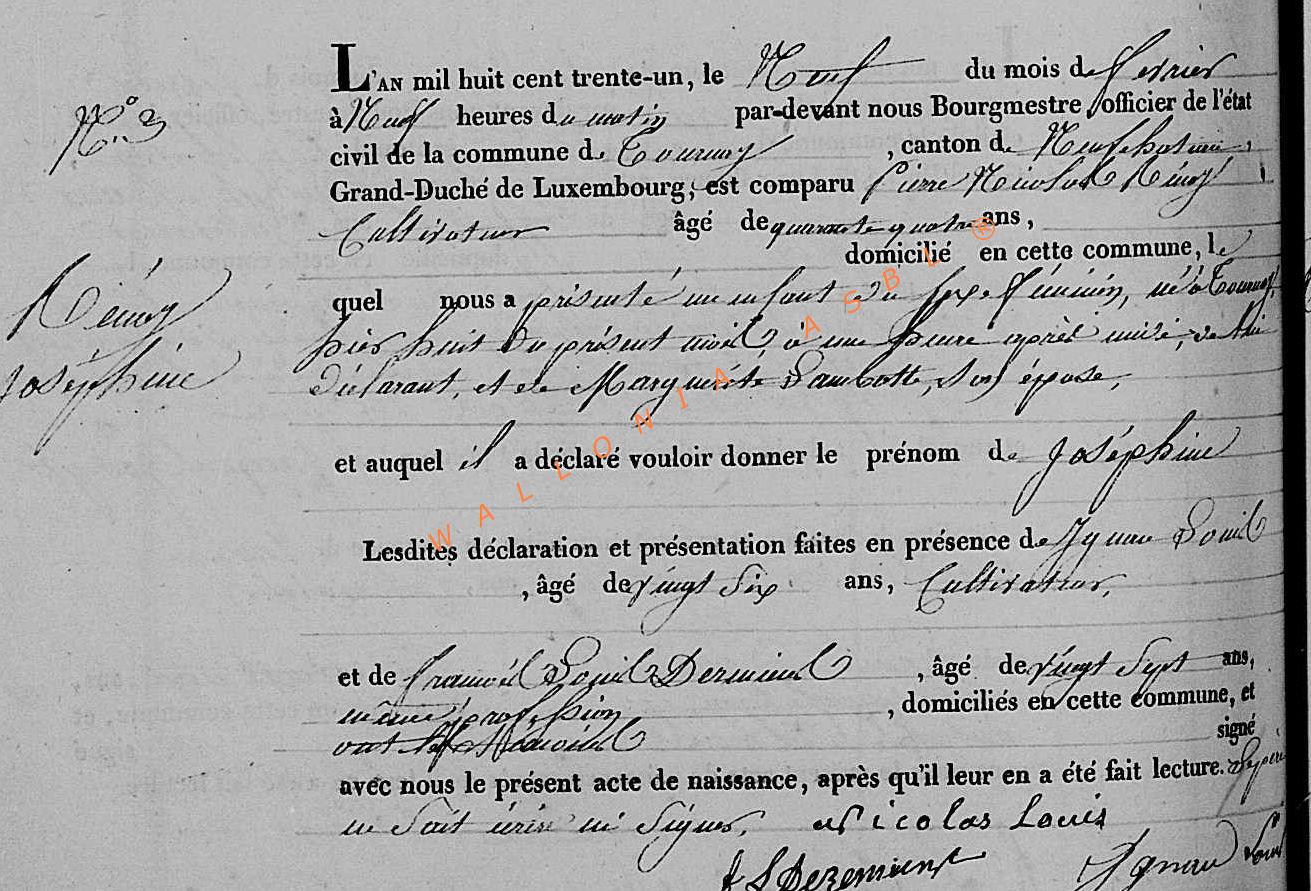 L'AN mil huit cent trente-un, le Neuf du mois de fevrier
N° 3
à Neuf heures du matin par-devant nous Bourgmestre, officier de l'état
civil de la commune de Tournay, canton de Neufchateau,
Grand-Duché de Luxembourg, est comparu Pierre Nicolas Rémy
Cultivateur âgé de quarante quatre ans,
domicilié en cette commune, le
Rémy
Joséphine
quel nous a présenté un enfant du sexe féminin, né à Tournay,
hier huit du présent mois, à une heure après midi, de lui
déclarant, et de Marguerite Lambotte, son épouse,
et auquel il a déclaré vouloir donner le prénom de Joséphine
Lesdites déclaration et présentation faites en présence de Ignace Louis
, âgé de vingt six ans, Cultivateur,
et de françois Louis , âgé de vingt sept ans,
même profession , domiciliés en cette commune, et
ont signé
avec nous le présent acte de naissance, après qu'il leur en a été fait lecture. Le père
ne sait écrire ni signer. Nicolas Louis
Ignace Louis
WALLONIA ASBL ®